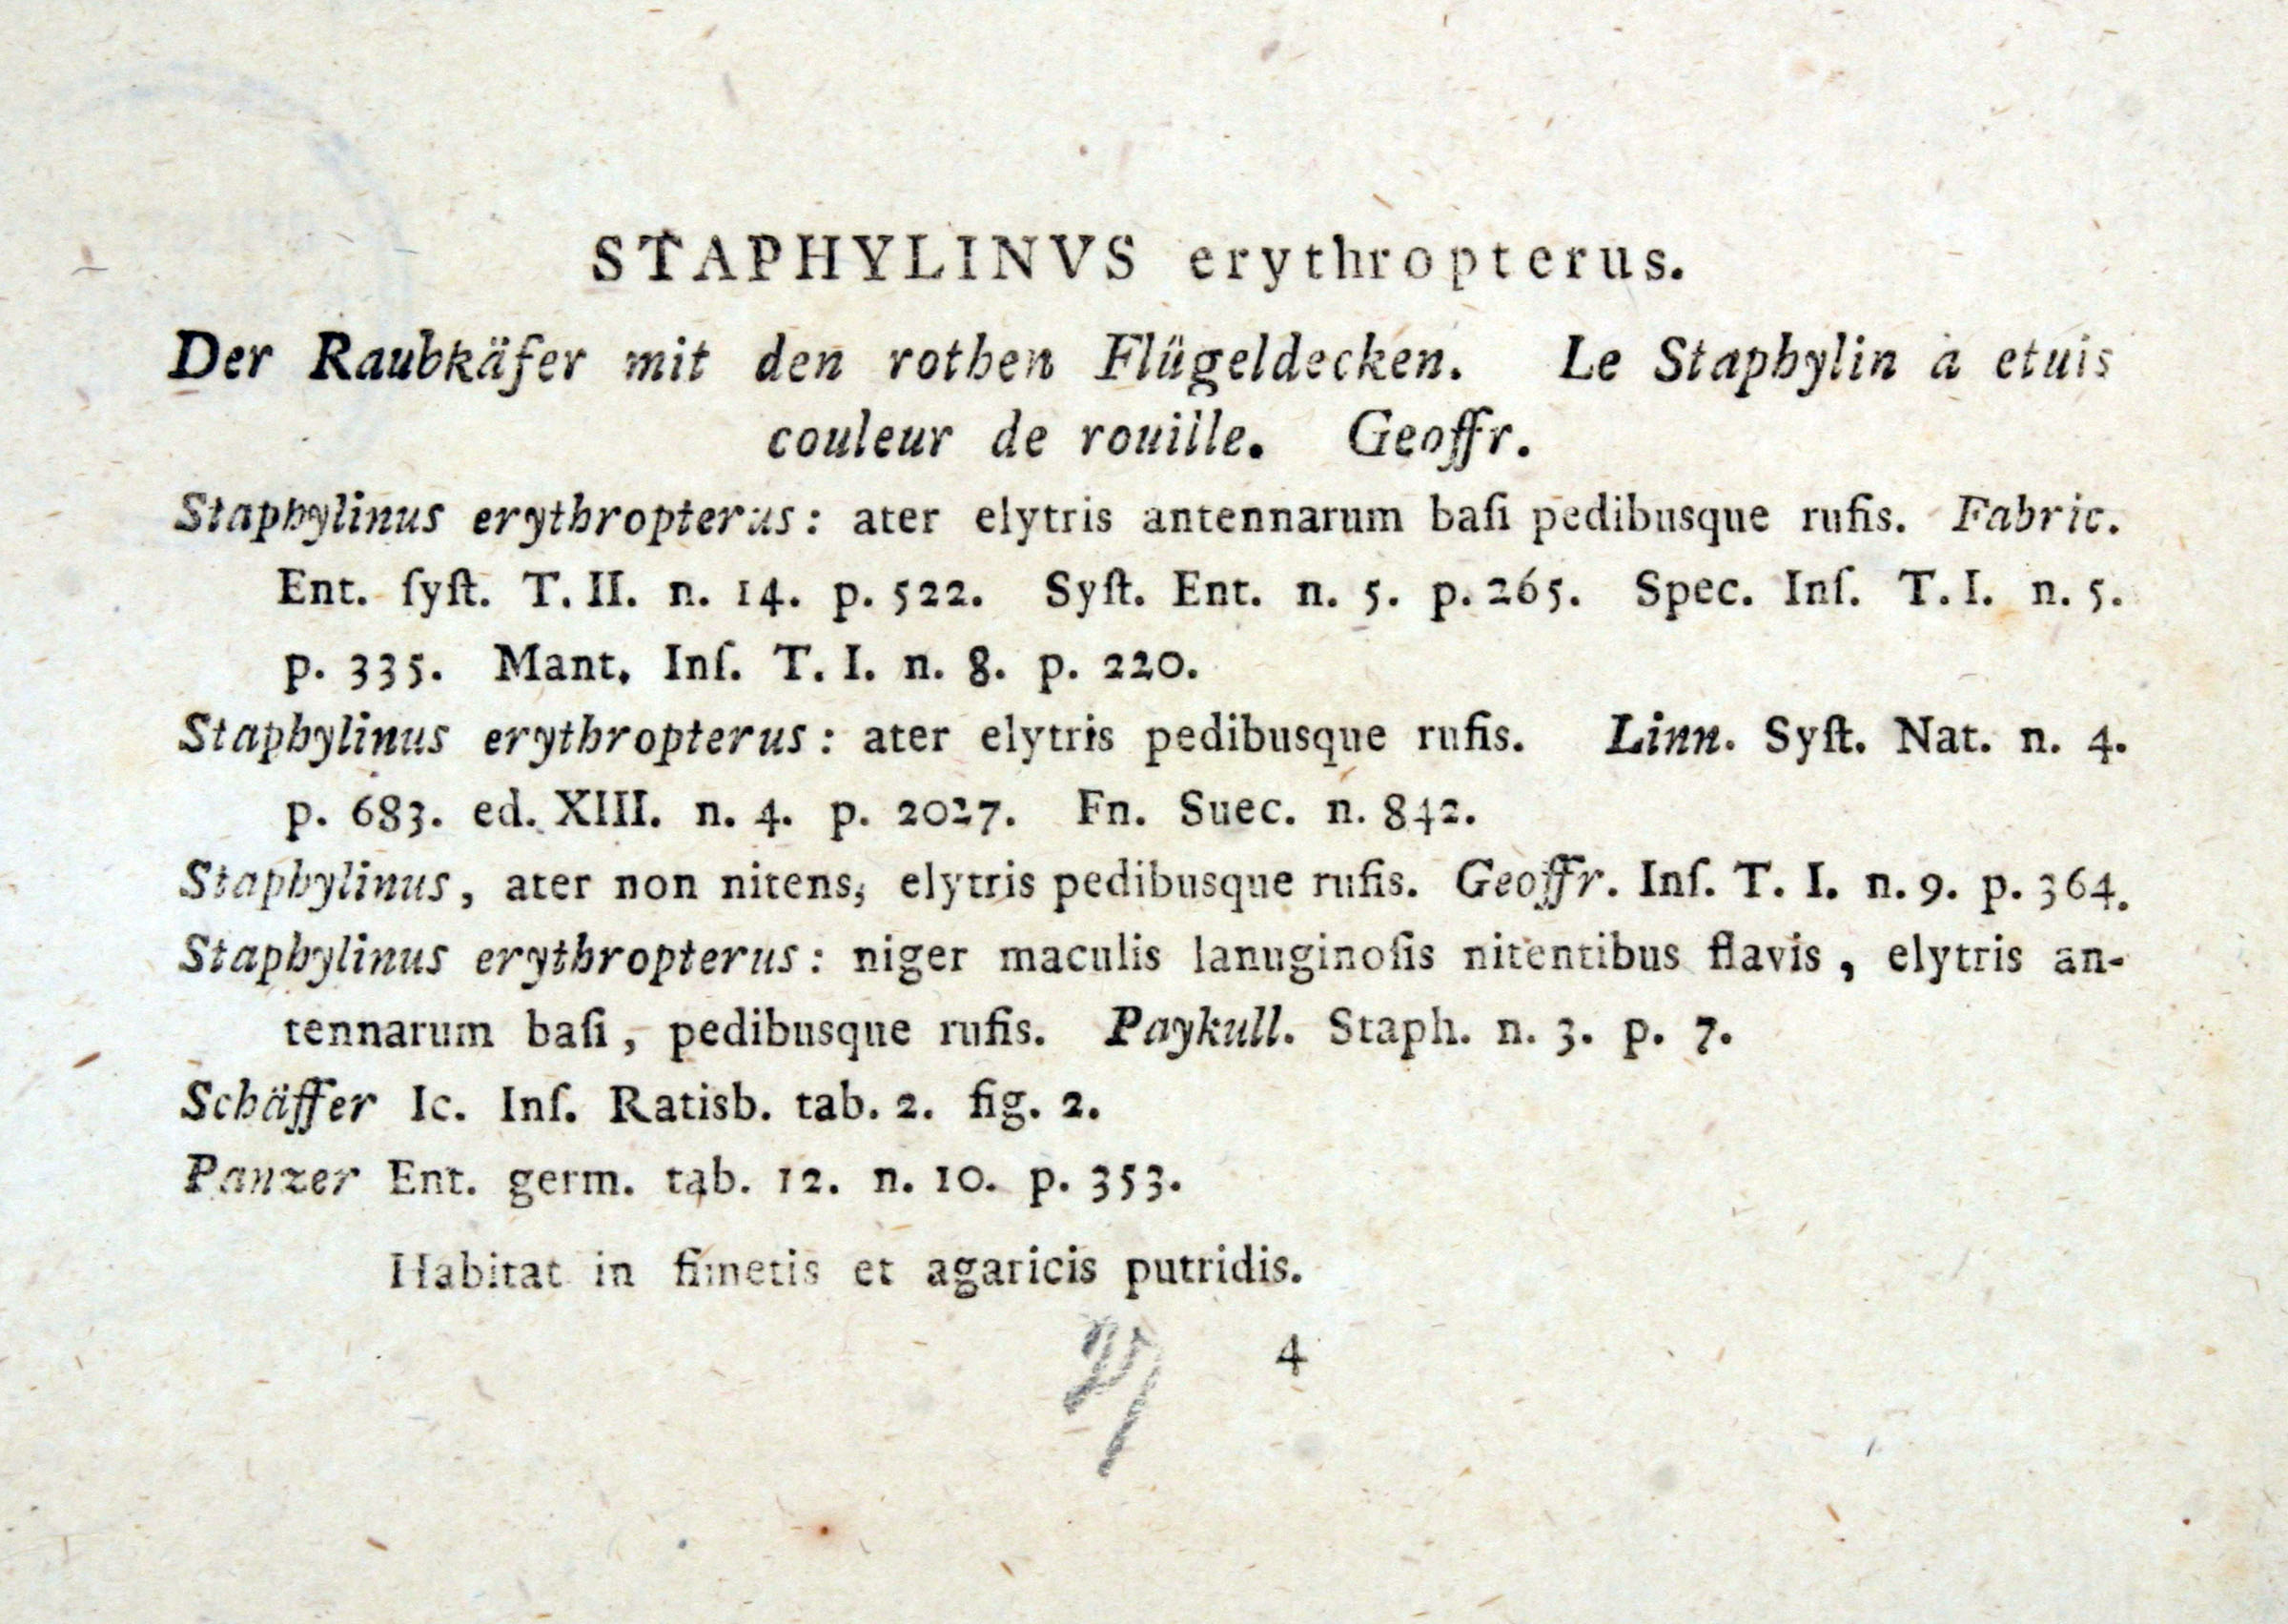 STAPHYLINVS erythropterus.
Der Raubkäfer mit den rothen Flügeldecken. Le Staphylin à etuis
couleur de rouille. Geoffr.
Staphylinus erythropterus: ater elytris antennarum baſi pedibusque rufis. Fabric.
Ent. ſyſt. T. II. n. 14. p. 522. Syſt. Ent. n. 5. p. 265. Spec. Inſ. T. I. n. 5.
p. 335. Mant. Inſ. T. I. n. 8. p. 220.
Staphylinus erythropterus: ater elytris pedibusque rufis. Linn. Syſt. Nat. n. 4.
p. 683. ed. XIII. n. 4. p. 2027. Fn. Suec. n. 842.
Staphylinus, ater non nitens, elytris pedibusque rufis. Geoffr. Inſ. T. I. n. 9. p. 364.
Staphylinus erythropterus: niger maculis lanuginoſis nitentibus flavis, elytris an-
tennarum baſi, pedibusque rufis. Paykull. Staph. n. 3. p. 7.
Schäffer Ic. Inſ. Ratisb. tab. 2. fig. 2.
Panzer Ent. germ. tab. 12. n. 10. p. 353.
Habitat in fimetis et agaricis putridis.
4